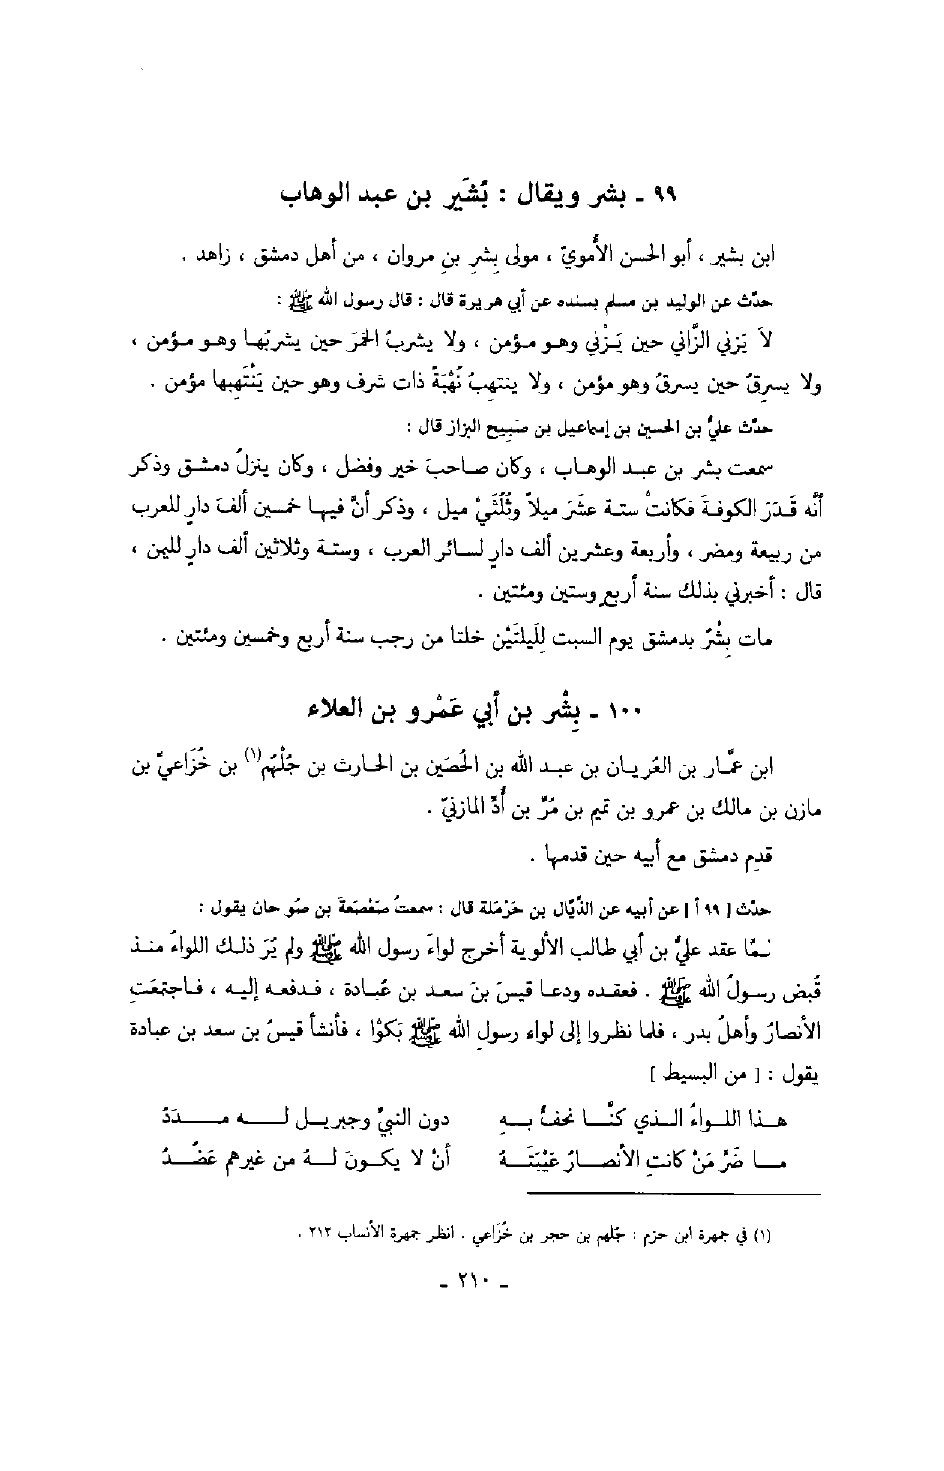 ٩٩ ـ بشر ويقال : بُشَير بن عبد الوهاب
ابن بشير ، أبو الحسن الأُمويّ ، مولى بِشرِ بنِ مروان ، من أهل دمشق ، زاهد .
حدّث عن الوليد بن مسلم بسنده عن أبي هريرة قال : قال رسول الله ﷺ :
لاَ يَزني الزَّاني حين يَـزْني وهـو مـؤمن ، ولا يشربُ الخمرَ حين يشربُهـا وهـو مـؤمن ،
ولا يسرِقُ حين يسرقُ وهو مؤمن ، ولا ينتهِبُ نُهْبَةً ذات شرف وهو حين يَنْتَهِبها مؤمن .
حدّث عليُّ بن الحسين بن إسماعيل بن صَبِيح البزاز قال :
سمعت بشر بن عبـد الوهـاب ، وكان صـاحبَ خير وفضل ، وكان ينزلُ دمشـق وذكر
أنّه قَـدَرَ الكوفـةَ فكانتْ ستـة عَشَرَ ميلاً وثُلُثَيْ ميل ، وذكر أنّ فيهـا خمـسين ألفَ دارٍ للعرب
من ربيعة ومضر ، وأربعة وعشرين ألف دارٍ لسـائر العرب ، وستـة وثلاثين ألف دارٍ لليمن ،
قال : أخبرني بذلك سنة أربع وستين ومئتين .
مات بِشْرٌ بدمشق يوم السبت لِلَيلتَيْن خلتا من رجب سنة أربع وخمسين ومئتين .
١٠٠ ـ بِشْر بن أبي عَمْرو بن العلاء
ابن عمَّـار بن العُريـان بن عبـد الله بن الحُصَين بن الحـارث بن جُلْهُم(١) بن خُزَاعيّ بن
مازن بن مالك بن عمرو بن تميم بن مُرّ بن أُدّ المازنيّ .
قدِم دمشق مع أبيه حين قدمها .
حدّث [ ٩٩ أ ] عن أبيه عن الذّيّال بن حَرْمَلة قال : سمعتُ صَعْصَعَةَ بن صُوحان يقول :
لـمّا عقد عليُّ بن أبي طالب الألوية أخرج لواءَ رسول الله ﷺ ولم يُرَ ذلـك اللواءُ منـذ
قُبض رسولُ الله ﷺ . فعقـده ودعـا قيسَ بنَ سعـد بن عُبـادة ، فـدفعـه إليـه ، فـاجتمَعَتِ
الأنصارُ وأهلُ بدر ، فلما نظروا إلى لواء رسولِ الله ﷺ بَكَوْا ، فأنشأ قيسُ بن سعد بن عبادة
يقول : [ من البسيط ]
هـذا اللـواءُ الـذي كنَّـا نحفُّ بـهِ دون النبيِّ وجبريـل لـه مـدَدُ
مـا ضَرَّ مَنْ كانتِ الأنصـارُ عَيْبَتَـهُ أنْ لا يكـونَ لـهُ من غيرهم عَضُـدُ
(١) في جمهرة ابن حزم : جُلهم بن حجر بن خُزَاعي . انظر جمهرة الأنساب ٢١٢ .
ـ ٢١٠ ـ